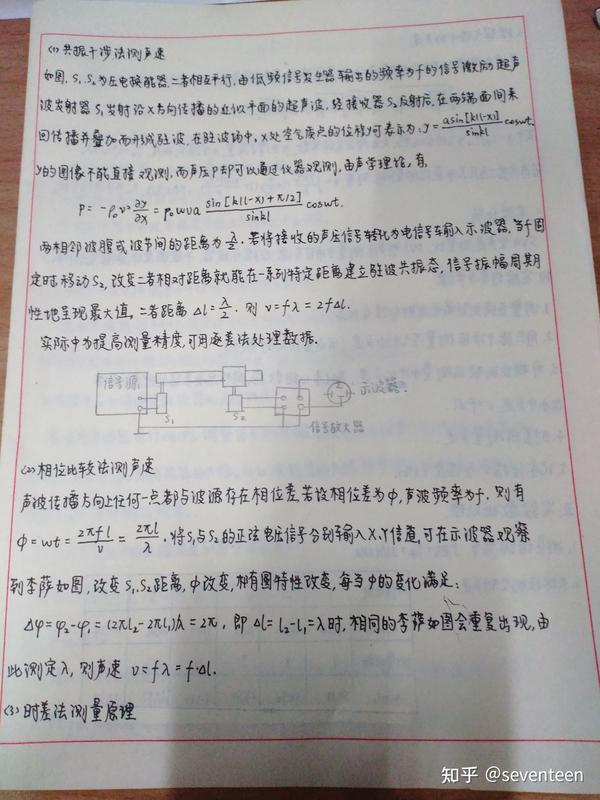 (1)共振干涉法测声速
如图,S₁.S₂为压电换能器,二者相互平行,由低频信号发生器输出的频率为f的信号激励超声
波发射器S₁发射沿X方向传播的近似平面的超声波,经接收器S₂反射后,在两端面间来
回传播并叠加而形成驻波,在驻波场中,x处空气质点的位移y可表示为:y=asin[k(l-x)]/sinkl coswt.
y的图像不能直接观测,而声压P却可以通过仪器观测,由声学理论,有
P = -ρ₀v² ∂y/∂x = ρ₀wva sin[k(l-x)+π/2]/sinkl coswt.
两相邻波腹或波节间的距离为λ/2.若将接收的声压信号转化为电信号车输入示波器,当f固
定时移动S₂,改变二者相对距离就能在一系列特定距离建立驻波共振态,信号振幅周期
性地呈现最大值,二者距离 Δl=λ/2. 则 v=fλ=2fΔl.
实际中为提高测量精度,可用逐差法处理数据.
信号源
S₁
S₂
示波器.
信号放大器
(2)相位比较法测声速
声波传播方向上任何一点都与波源存在相位差,若设相位差为φ,声波频率为f.则有
φ=wt=2πfl/v=2πl/λ.将S₁与S₂的正弦电压信号分别车输入X、Y信道,可在示波器观察
到李萨如图,改变S₁.S₂距离,φ改变,椭圆特性改变,每当φ的变化满足:
Δφ=φ₂-φ₁=(2πl₂-2πl₁)/λ=2π,即Δl=l₂-l₁=λ时,相同的李萨如图会重复出现,由
此测定λ,则声速 v=fλ=f·Δl.
(3)时差法测量原理
知乎 @seventeen